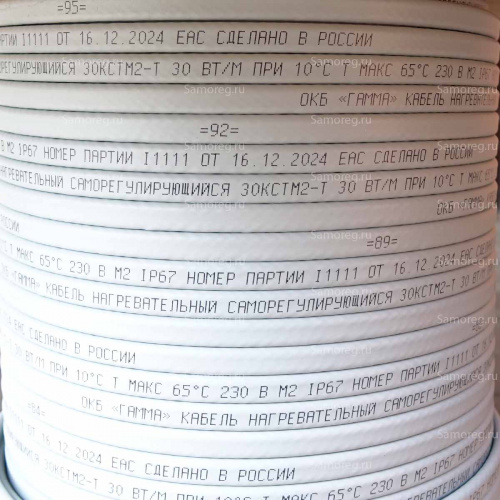 =95=
ПАРТИИ I1111 ОТ 16.12.2024 ЕАС СДЕЛАНО В РОССИИ
30КСТМ2-Т 30 ВТ/М ПРИ 10°С Т МАКС 65°С 230 В М2
ОКБ «ГАММА» КАБЕЛЬ
=92=
В М2 IP67 НОМЕР ПАРТИИ I1111 ОТ 16.12.2024 ЕАС СДЕЛАНО В РОССИИ
НАГРЕВАТЕЛЬНЫЙ САМОРЕГУЛИРУЮЩИЙСЯ 30КСТМ2-Т 30 ВТ/М ПРИ 10°С Т
ОКБ
=89=
Т МАКС 65°С 230 В М2 IP67 НОМЕР ПАРТИИ I1111 ОТ 16.12.2024 ЕАС
«ГАММА» КАБЕЛЬ НАГРЕВАТЕЛЬНЫЙ САМОРЕГУЛИРУЮЩИЙСЯ 30КСТМ2-Т 30
ЕАС СДЕЛАНО В РОССИИ
30 ВТ/М ПРИ 10°С Т МАКС 65°С 230 В М2 IP67 НОМЕР ПАРТИИ I1111
=84=
ОКБ «ГАММА» КАБЕЛЬ НАГРЕВАТЕЛЬНЫЙ
I1111 ОТ 16.12.2024 ЕАС СДЕЛАНО В РОССИИ
30КСТМ2-Т 30 ВТ/М ПРИ 10°С Т МАКС 65°С 230 В М2
ОКБ «ГАММА»
Samoreg.ru